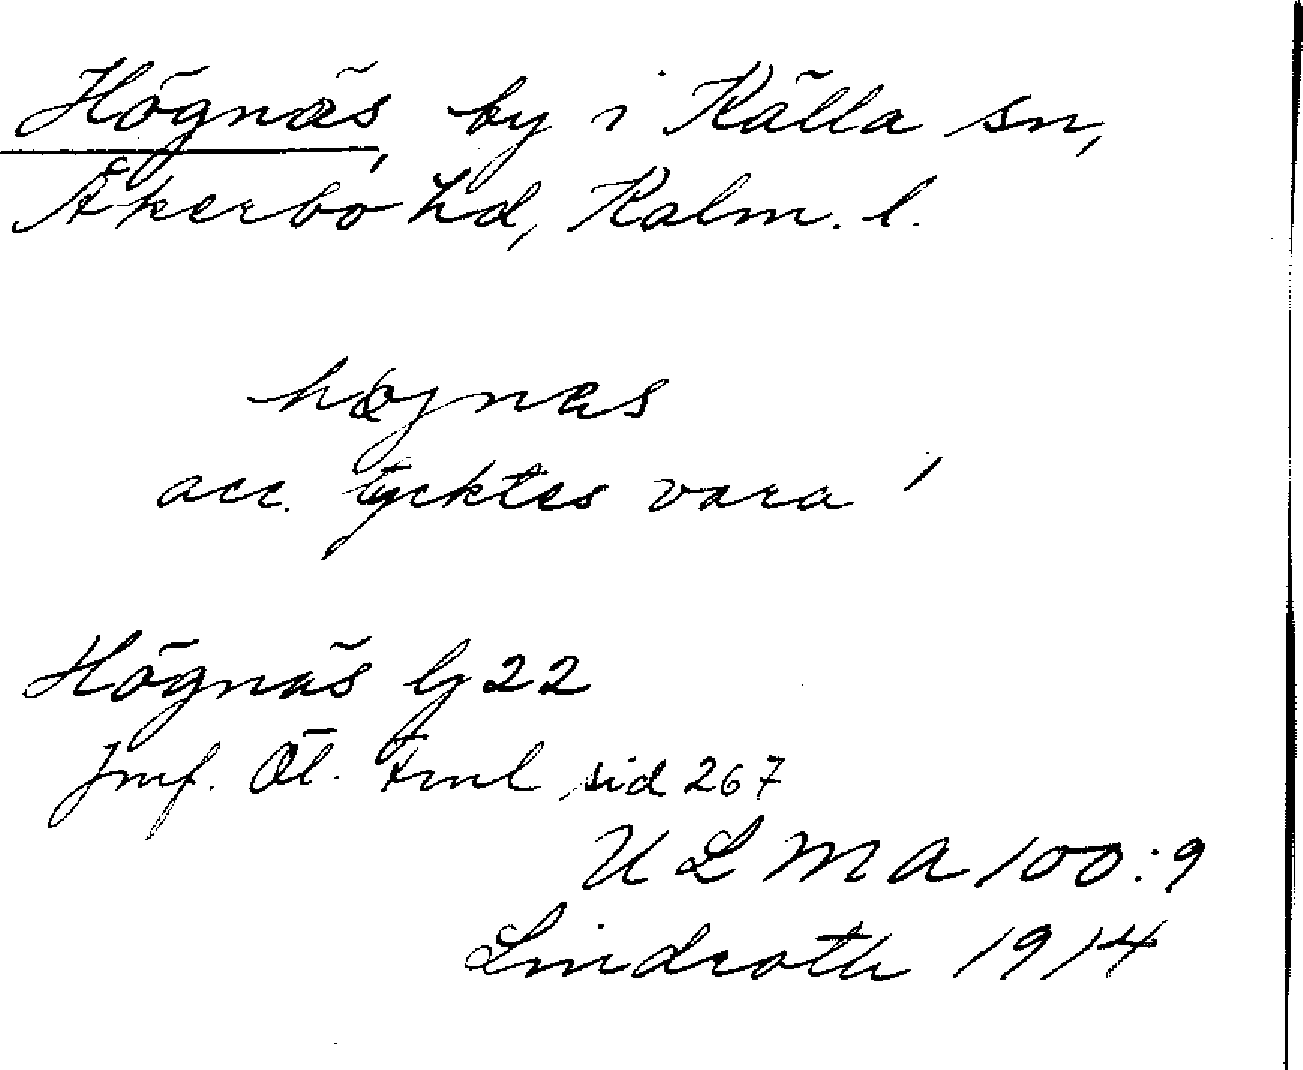 Högnäs, by i Källa sn,
Åkerbo hd, Kalm. l.
høgnæs
acc. tycktes vara ′
Högnäs G 22
Jmf. Öl. fml sid 267
ULMA 100:9
Lindroth 1914